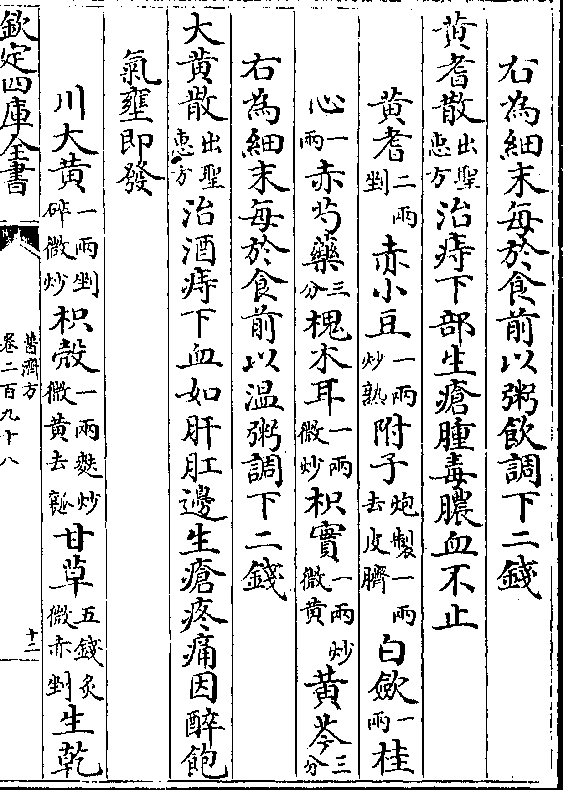 右為細末每於食前以粥飲調下二錢
黄耆散出聖惠方治痔下部生瘡腫毒膿血不止
黄耆二兩剉赤小豆一兩炒熟附子炮製一兩去皮臍白斂一兩桂
心一兩赤芍藥三分槐木耳一兩微炒枳實一兩炒微黄黄芩三分
右為細末每於食前以温粥調下二錢
大黄散出聖惠方治酒痔下血如肝肛邊生瘡疼痛因醉飽
氣壅即發
川大黄一兩剉碎微炒枳殼一兩麩炒微黄去瓤甘草五錢炙微赤剉生乾
欽定四庫全書
普濟方
卷二百九十八
十三